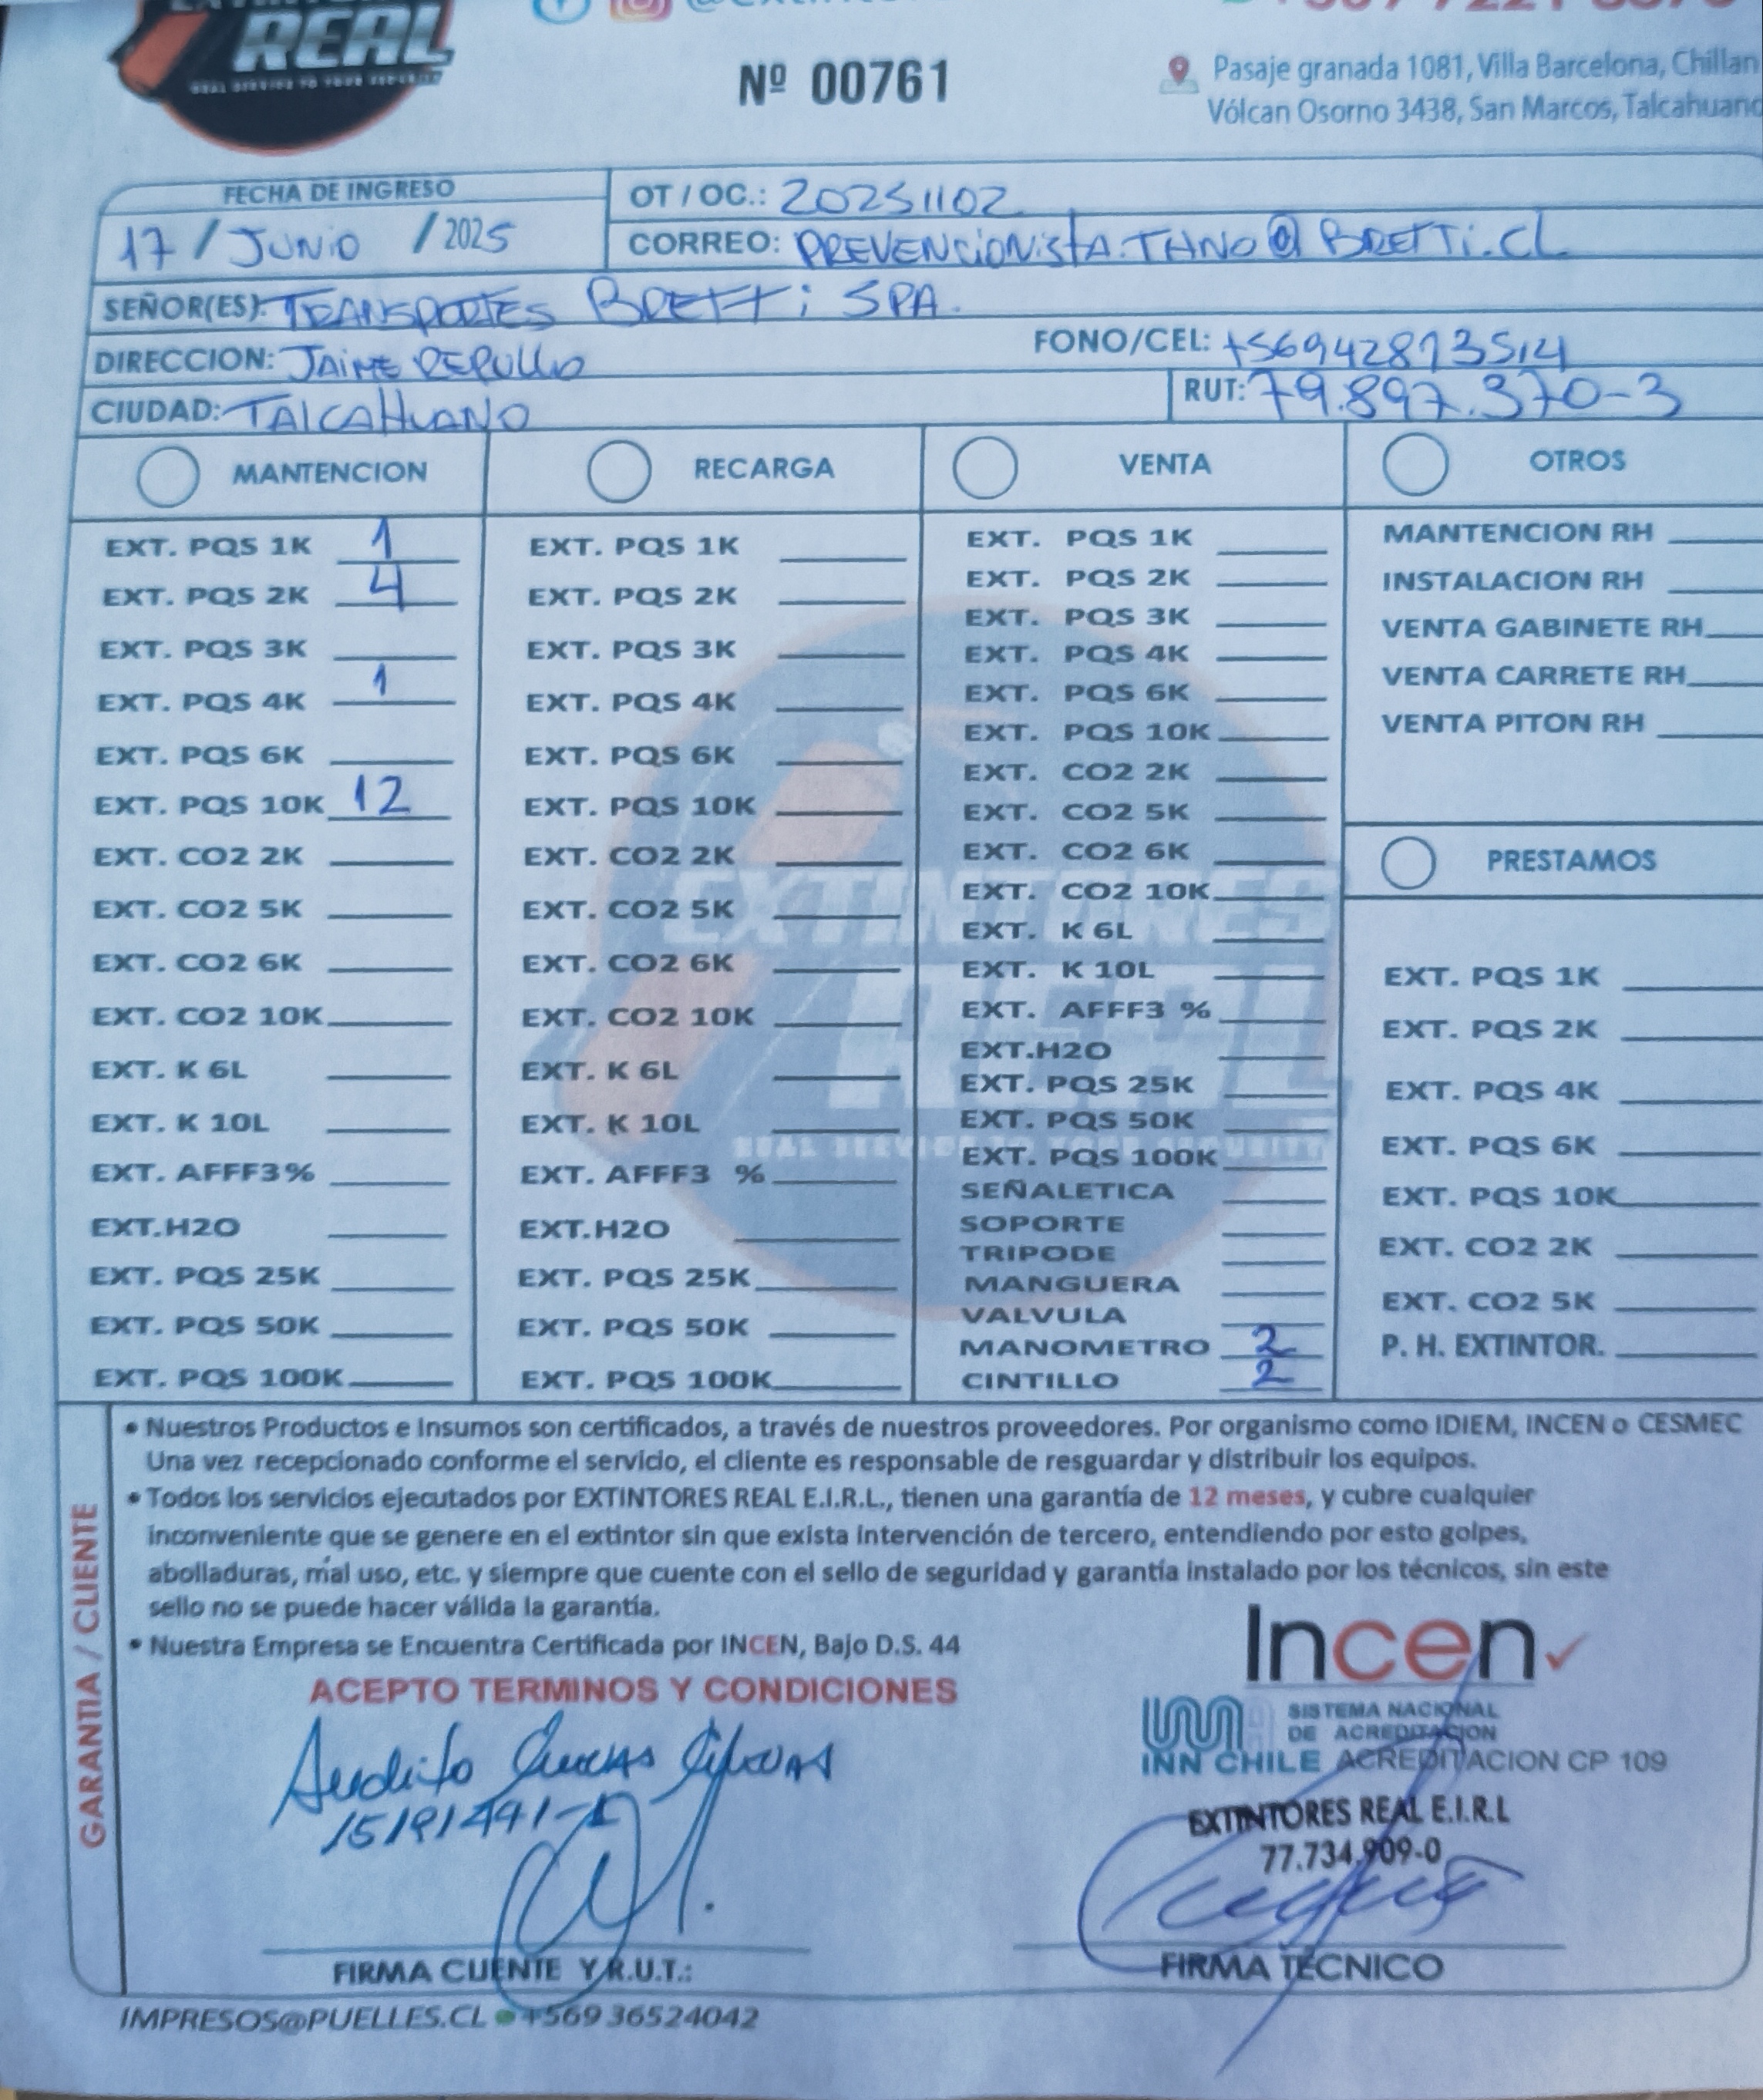 REAL
REAL SERVICE TO YOUR SECURITY
Nº 00761
Pasaje granada 1081, Villa Barcelona, Chillan
Vólcan Osorno 3438, San Marcos, Talcahuano
FECHA DE INGRESO
17 / JUNIO / 2025
OT / OC.: 20251102
CORREO: PREVENCIONISTA.THNO@BRETTI.CL
SEÑOR(ES): TRANSPORTES BRETTI SPA.
DIRECCION: JAIME REPULLO
FONO/CEL: +56942873514
CIUDAD: TALCAHUANO
RUT: 79.897.370-3
MANTENCION
EXT. PQS 1K 1
EXT. PQS 2K 4
EXT. PQS 3K
EXT. PQS 4K 1
EXT. PQS 6K
EXT. PQS 10K 12
EXT. CO2 2K
EXT. CO2 5K
EXT. CO2 6K
EXT. CO2 10K
EXT. K 6L
EXT. K 10L
EXT. AFFF3%
EXT.H2O
EXT. PQS 25K
EXT. PQS 50K
EXT. PQS 100K
RECARGA
EXT. PQS 1K
EXT. PQS 2K
EXT. PQS 3K
EXT. PQS 4K
EXT. PQS 6K
EXT. PQS 10K
EXT. CO2 2K
EXT. CO2 5K
EXT. CO2 6K
EXT. CO2 10K
EXT. K 6L
EXT. K 10L
EXT. AFFF3 %
EXT.H2O
EXT. PQS 25K
EXT. PQS 50K
EXT. PQS 100K
VENTA
EXT. PQS 1K
EXT. PQS 2K
EXT. PQS 3K
EXT. PQS 4K
EXT. PQS 6K
EXT. PQS 10K
EXT. CO2 2K
EXT. CO2 5K
EXT. CO2 6K
EXT. CO2 10K
EXT. K 6L
EXT. K 10L
EXT. AFFF3 %
EXT.H2O
EXT. PQS 25K
EXT. PQS 50K
EXT. PQS 100K
SEÑALETICA
SOPORTE
TRIPODE
MANGUERA
VALVULA
MANOMETRO 2
CINTILLO 2
OTROS
MANTENCION RH
INSTALACION RH
VENTA GABINETE RH
VENTA CARRETE RH
VENTA PITON RH
PRESTAMOS
EXT. PQS 1K
EXT. PQS 2K
EXT. PQS 4K
EXT. PQS 6K
EXT. PQS 10K
EXT. CO2 2K
EXT. CO2 5K
P. H. EXTINTOR.
EXTINTORES
REAL
REAL SERVICE TO YOUR SECURITY
GARANTIA / CLIENTE
• Nuestros Productos e Insumos son certificados, a través de nuestros proveedores. Por organismo como IDIEM, INCEN o CESMEC
Una vez recepcionado conforme el servicio, el cliente es responsable de resguardar y distribuir los equipos.
• Todos los servicios ejecutados por EXTINTORES REAL E.I.R.L., tienen una garantía de 12 meses, y cubre cualquier
inconveniente que se genere en el extintor sin que exista intervención de tercero, entendiendo por esto golpes,
abolladuras, mal uso, etc. y siempre que cuente con el sello de seguridad y garantía instalado por los técnicos, sin este
sello no se puede hacer válida la garantía.
• Nuestra Empresa se Encuentra Certificada por INCEN, Bajo D.S. 44
ACEPTO TERMINOS Y CONDICIONES
15191441-1
FIRMA CLIENTE Y R.U.T.:
Incen
SISTEMA NACIONAL
DE ACREDITACION
INN CHILE ACREDITACION CP 109
EXTINTORES REAL E.I.R.L
77.734.909-0
FIRMA TECNICO
IMPRESOS@PUELLES.CL +569 36524042